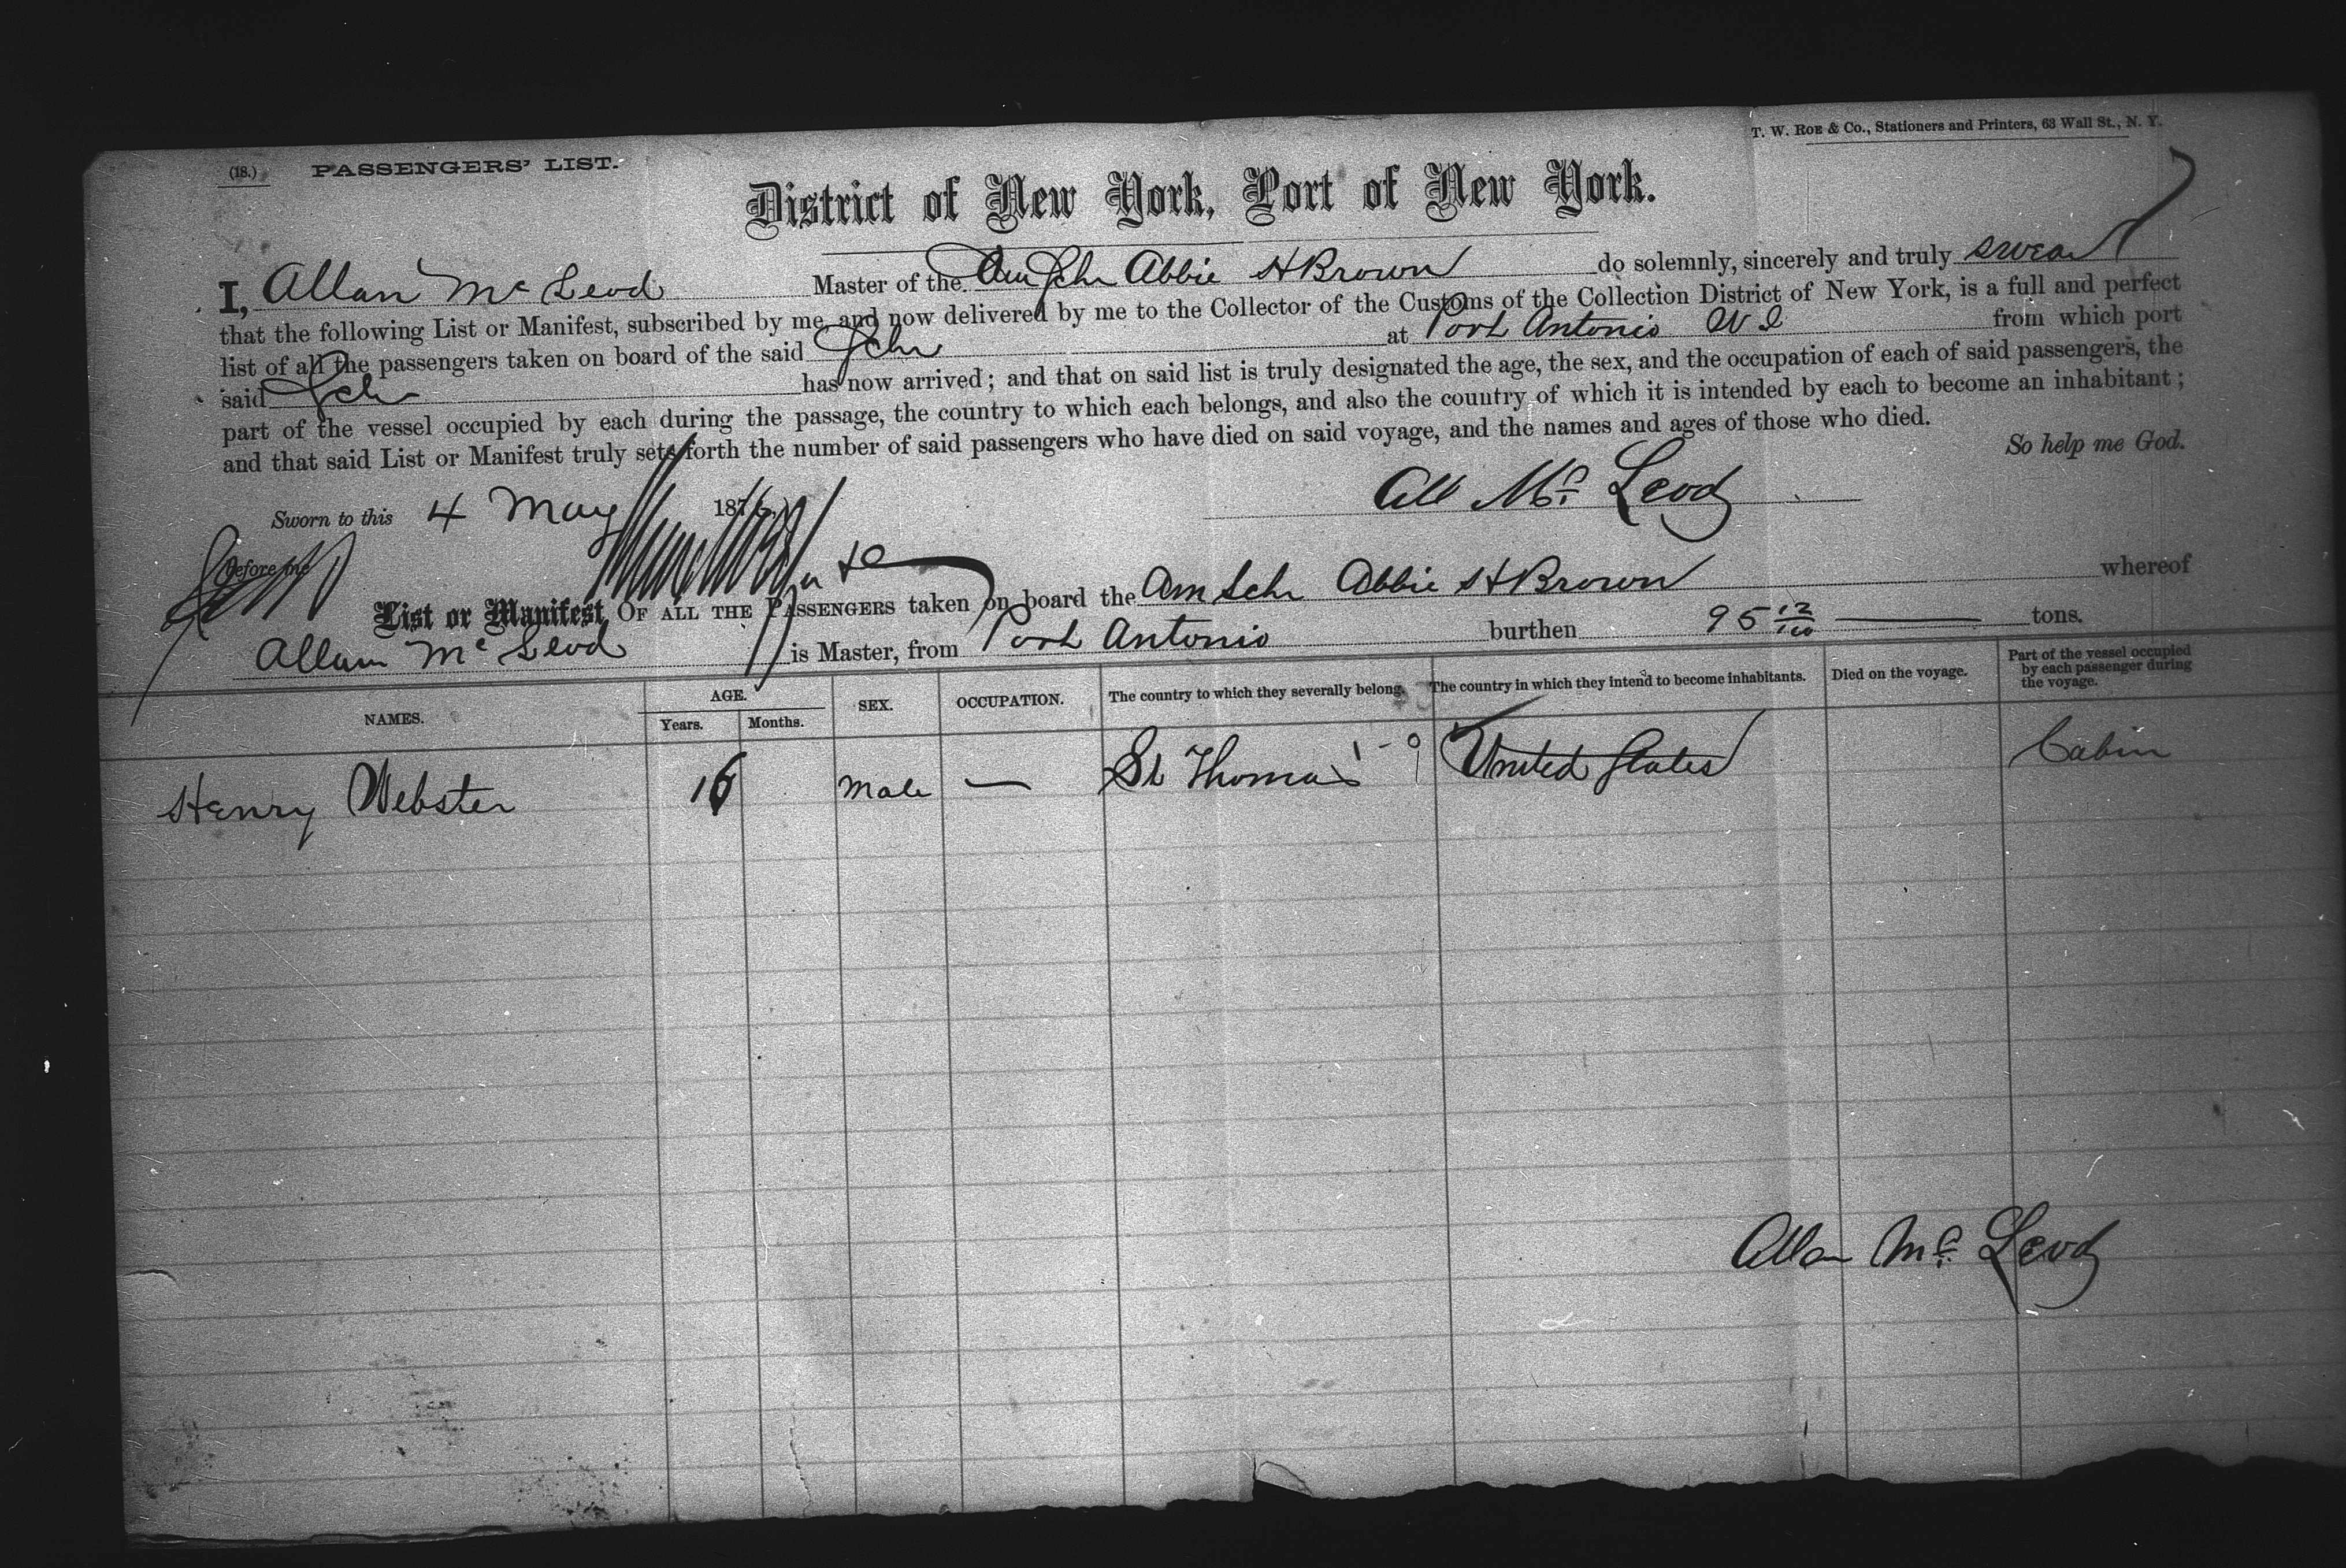 (18.) PASSENGERS' LIST.
T. W. ROE & Co., Stationers and Printers, 63 Wall St., N. Y.
District of New York, Port of New York.
I, Allan Mc Leod Master of the Am Schr Abbie H Brown do solemnly, sincerely and truly swear
that the following List or Manifest, subscribed by me, and now delivered by me to the Collector of the Customs of the Collection District of New York, is a full and perfect
list of all the passengers taken on board of the said Schr at Port Antonio W I from which port
said Schr has now arrived; and that on said list is truly designated the age, the sex, and the occupation of each of said passengers, the
part of the vessel occupied by each during the passage, the country to which each belongs, and also the country of which it is intended by each to become an inhabitant;
and that said List or Manifest truly sets forth the number of said passengers who have died on said voyage, and the names and ages of those who died.
So help me God.
Sworn to this 4 May 187
All Mc Leod
Before me
List or Manifest OF ALL THE PASSENGERS taken on board the Am Schr Abbie H Brown whereof
Allan Mc Leod is Master, from Port Antonio burthen 95 12/100 tons.
NAMES. AGE. Years. Months. SEX. OCCUPATION. The country to which they severally belong. The country in which they intend to become inhabitants. Died on the voyage. Part of the vessel occupied by each passenger during the voyage.
Henry Webster 16 Male — St Thomas United States Cabin
Allan Mc Leod